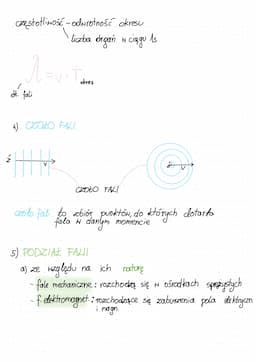 częstotliwość - odwrotność okresu
liczba drgań w ciągu 1s
λ = v · T
okres
dł. fali
4). CZOŁO FALI
CZOŁO FALI
czoło fali to zbiór punktów, do których dotarła
fala w danym momencie
5) PODZIAŁ FALI
a) ze względu na ich naturę
- fale mechaniczne: rozchodzą się w ośrodkach sprężystych
- f elektromagnet: rozchodzące się zaburzenia pola elektrycznego
i magn.